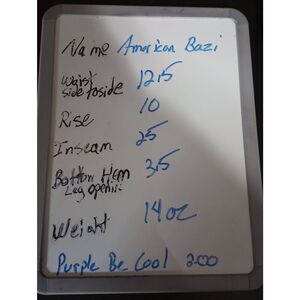 Name American Bazi
Waist
side toside 12.5
Rise 10
Inseam 25
Bottom Hem 3.5
Leg opening
Weight 14 oz
Purple Be Cool 200